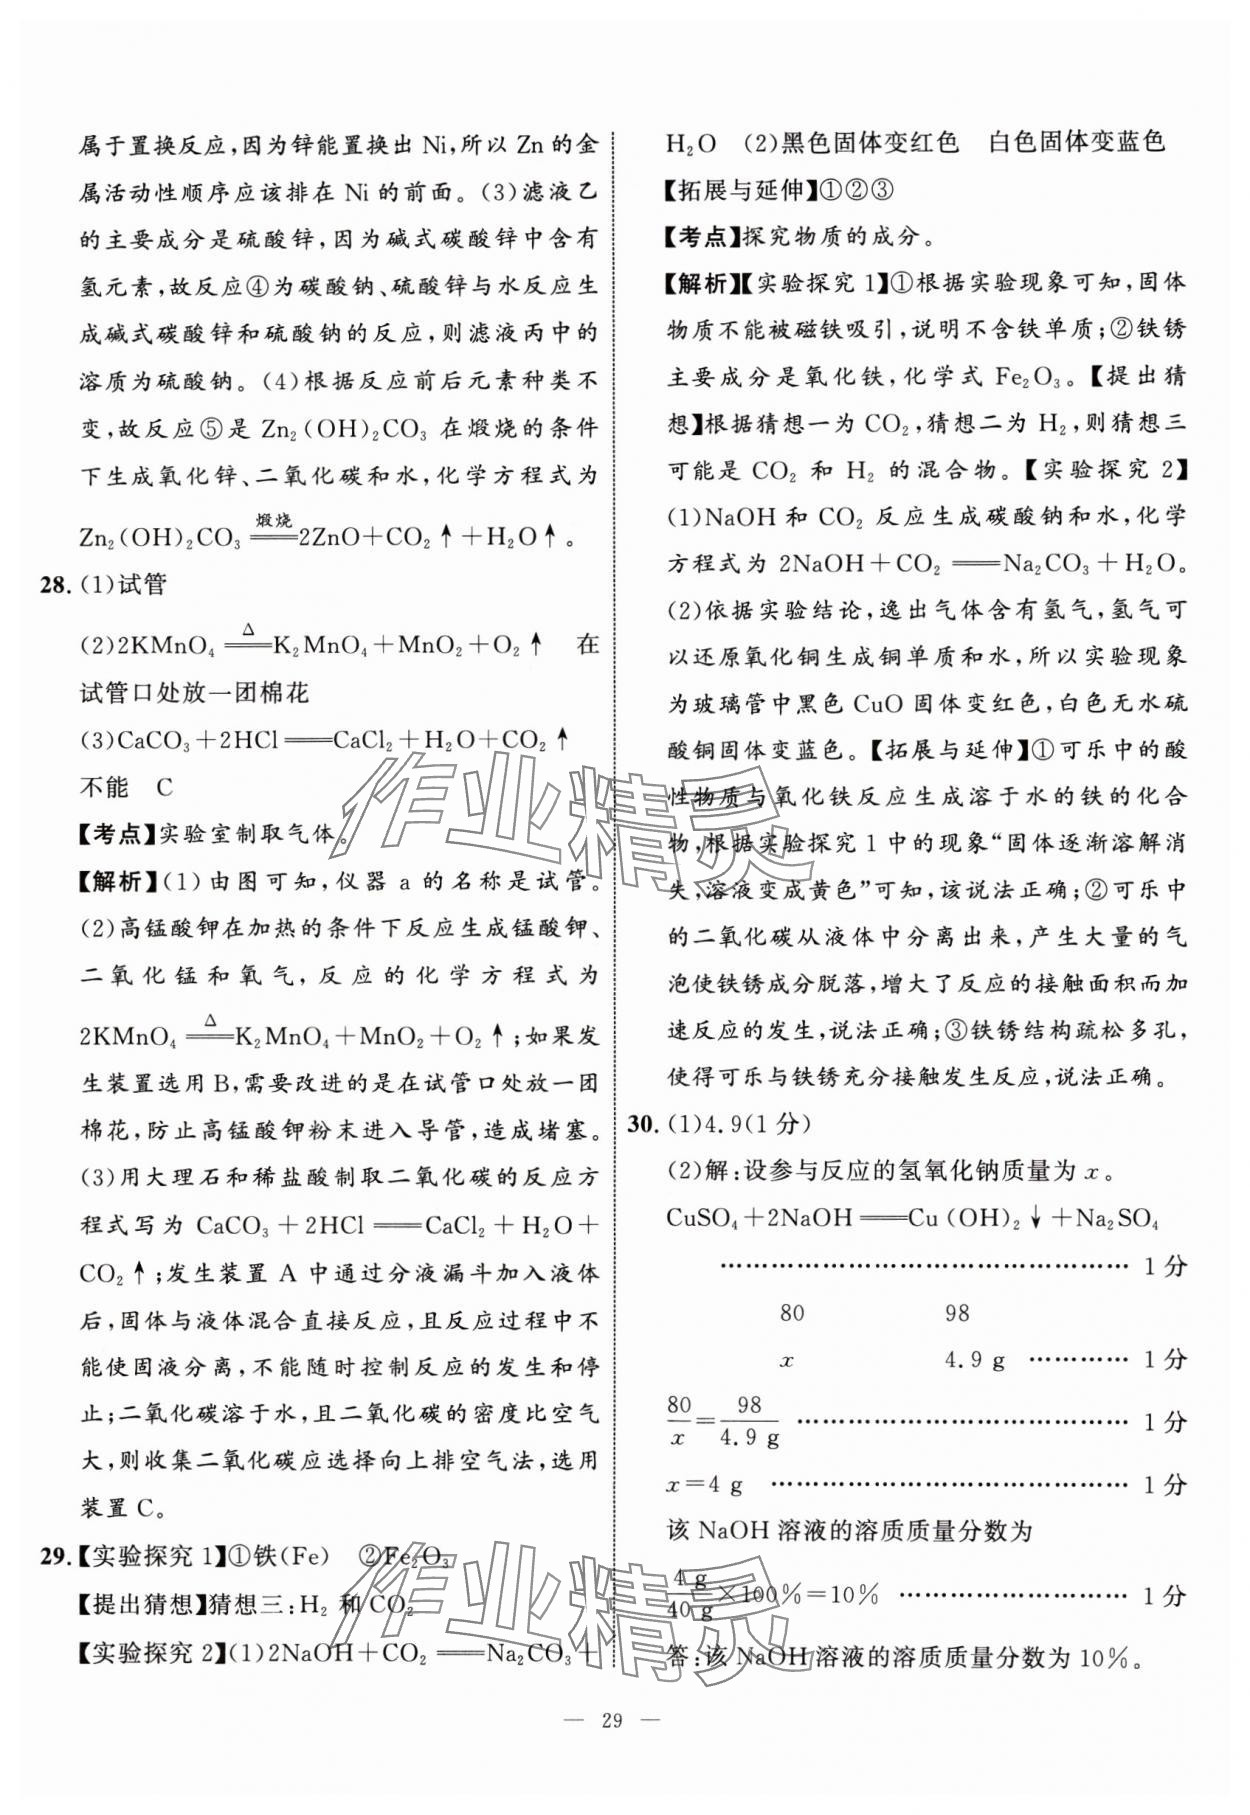 属于置换反应,因为锌能置换出 Ni,所以 Zn 的金
属活动性顺序应该排在 Ni 的前面。(3)滤液乙
的主要成分是硫酸锌,因为碱式碳酸锌中含有
氢元素,故反应④为碳酸钠、硫酸锌与水反应生
成碱式碳酸锌和硫酸钠的反应,则滤液丙中的
溶质为硫酸钠。(4)根据反应前后元素种类不
变,故反应⑤是 Zn₂(OH)₂CO₃ 在煅烧的条件
下生成氧化锌、二氧化碳和水,化学方程式为
Zn₂(OH)₂CO₃ ══煅烧══ 2ZnO+CO₂↑+H₂O↑。
28. (1)试管
(2)2KMnO₄ ══△══ K₂MnO₄+MnO₂+O₂↑ 在
试管口处放一团棉花
(3)CaCO₃+2HCl══CaCl₂+H₂O+CO₂↑
不能 C
【考点】实验室制取气体。
【解析】(1)由图可知,仪器 a 的名称是试管。
(2)高锰酸钾在加热的条件下反应生成锰酸钾、
二氧化锰和氧气,反应的化学方程式为
2KMnO₄ ══△══ K₂MnO₄+MnO₂+O₂↑;如果发
生装置选用 B,需要改进的是在试管口处放一团
棉花,防止高锰酸钾粉末进入导管,造成堵塞。
(3)用大理石和稀盐酸制取二氧化碳的反应方
程式写为 CaCO₃+2HCl══CaCl₂+H₂O+
CO₂↑;发生装置 A 中通过分液漏斗加入液体
后,固体与液体混合直接反应,且反应过程中不
能使固液分离,不能随时控制反应的发生和停
止;二氧化碳溶于水,且二氧化碳的密度比空气
大,则收集二氧化碳应选择向上排空气法,选用
装置 C。
29.【实验探究 1】①铁(Fe) ②Fe₂O₃
【提出猜想】猜想三:H₂ 和 CO₂
【实验探究 2】(1)2NaOH+CO₂══Na₂CO₃+
H₂O (2)黑色固体变红色 白色固体变蓝色
【拓展与延伸】①②③
【考点】探究物质的成分。
【解析】【实验探究 1】①根据实验现象可知,固体
物质不能被磁铁吸引,说明不含铁单质;②铁锈
主要成分是氧化铁,化学式 Fe₂O₃。【提出猜
想】根据猜想一为 CO₂,猜想二为 H₂,则猜想三
可能是 CO₂ 和 H₂ 的混合物。【实验探究 2】
(1)NaOH 和 CO₂ 反应生成碳酸钠和水,化学
方程式为 2NaOH+CO₂══Na₂CO₃+H₂O。
(2)依据实验结论,逸出气体含有氢气,氢气可
以还原氧化铜生成铜单质和水,所以实验现象
为玻璃管中黑色 CuO 固体变红色,白色无水硫
酸铜固体变蓝色。【拓展与延伸】①可乐中的酸
性物质与氧化铁反应生成溶于水的铁的化合
物,根据实验探究 1 中的现象“固体逐渐溶解消
失,溶液变成黄色”可知,该说法正确;②可乐中
的二氧化碳从液体中分离出来,产生大量的气
泡使铁锈成分脱落,增大了反应的接触面积而加
速反应的发生,说法正确;③铁锈结构疏松多孔,
使得可乐与铁锈充分接触发生反应,说法正确。
30. (1)4.9(1 分)
(2)解:设参与反应的氢氧化钠质量为 x。
CuSO₄+2NaOH══Cu(OH)₂↓+Na₂SO₄
………………………………………… 1 分
80 98
x 4.9 g ………… 1 分
80/x=98/4.9 g ………………………………… 1 分
x=4 g …………………………………… 1 分
该 NaOH 溶液的溶质质量分数为
4 g/40 g×100%=10% ……………………… 1 分
答:该 NaOH 溶液的溶质质量分数为 10%。
— 29 —
作业精灵
作业精灵